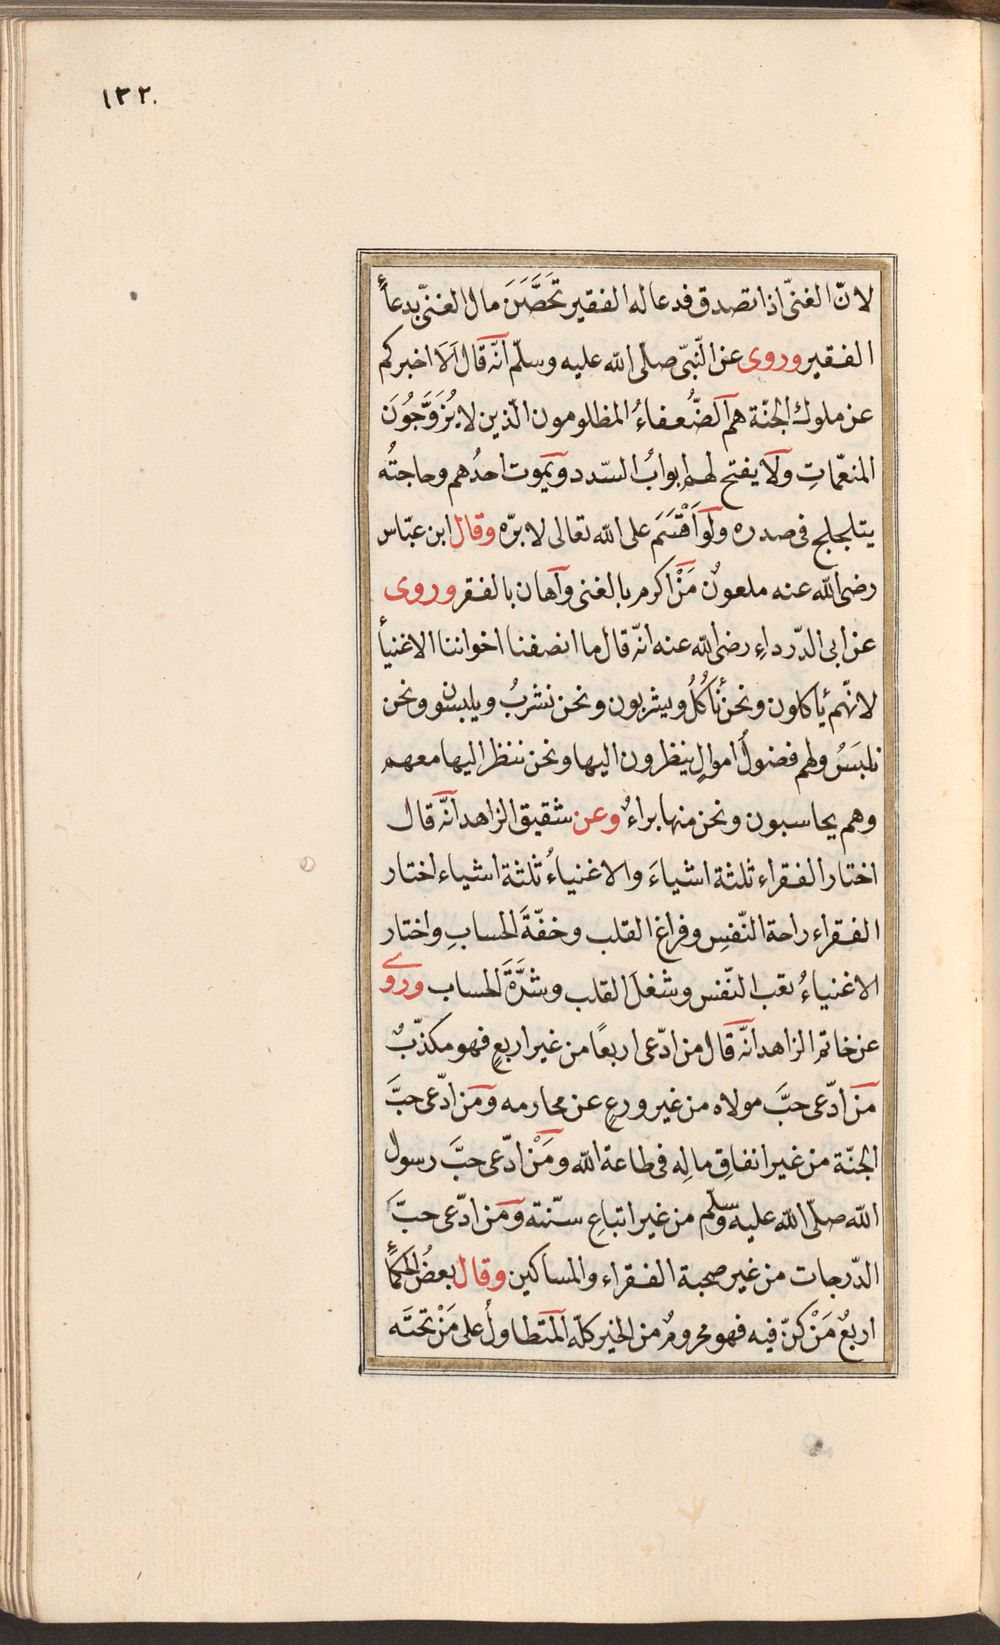 ١٣٢.
لانّ الغنىّ اذا تصدق فدعا له الفقير تَحَصَّنَ مال الغنىّ بدعاءِ
الفقير وروى عن النّبىّ صلّى الله عليه وسلّم انّه قال اَلَا اخبركم
عن ملوك الجنّة هم الضُّعفاءُ المظلومون الّذين لا يُزَوَّجُونَ
المنعّماتِ ولا يفتح لهم ابوابُ السّدد ويموت احدُهم وحاجتُه
يتلجلج فى صدره ولو اَقْسَمَ على الله تعالى لابرّه وقال ابن عبّاس
رضى الله عنه ملعونٌ مَنْ اكرم بالغنى واهان بالفقر وروى
عن ابى الدّرداءِ رضى الله عنه انّه قال ما انصفنا اخواننا الاغنيأ
لانّهم يأكلون ونحن نأكُلُ ويشربون ونحن نشربُ ويلبسون ونحن
نلبَسُ ولهم فضولُ اموالٍ ينظرون اليها ونحن ننظر اليها معهم
وهم يحاسبون ونحن منها براءٌ وعن شقيق الزاهد انّه قال
اختار الفقراء ثلثة اشياءَ والاغنياءُ ثلثة اشياء اختار
الفقراء راحة النّفسِ وفراغ القلب وخفّةَ الحسابِ واختار
الاغنياءُ تعب النّفس وشغلَ القلب وشدَّةَ الحساب وروى
عن خاتم الزاهد انّه قال من ادّعى اربعًا من غير اربعٍ فهو مكذّبٌ
مَن ادّعى حبَّ مولاه من غير ورعٍ عن محارمه ومَن ادّعى حبَّ
الجنّة من غير انفاقِ مالِه فى طاعة الله ومَنْ ادّعى حبَّ رسول
الله صلّى الله عليه وسلّم من غير اتباعِ سنّته ومَن ادّعى حبَّ
الدّرجات من غير صحبة الفقراء والمساكين وقال بعضُ الحكمأ
اربعٌ مَنْ كنّ فيه فهو محرومٌ من الخير كلّه المتطاولُ على مَنْ تحتَه